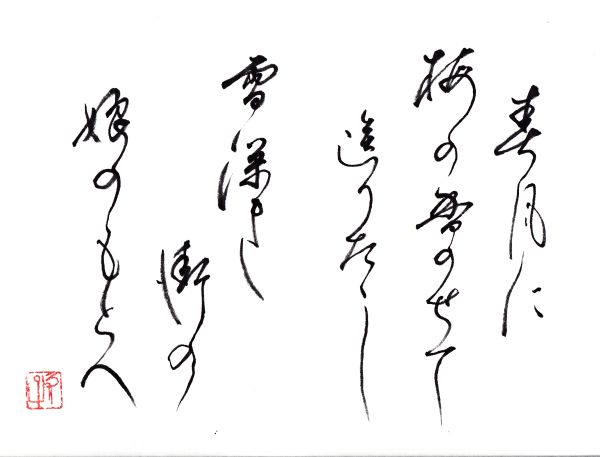 春風に
梅の香のせて
送りたし
雪深き
街の
嫁のもとへ